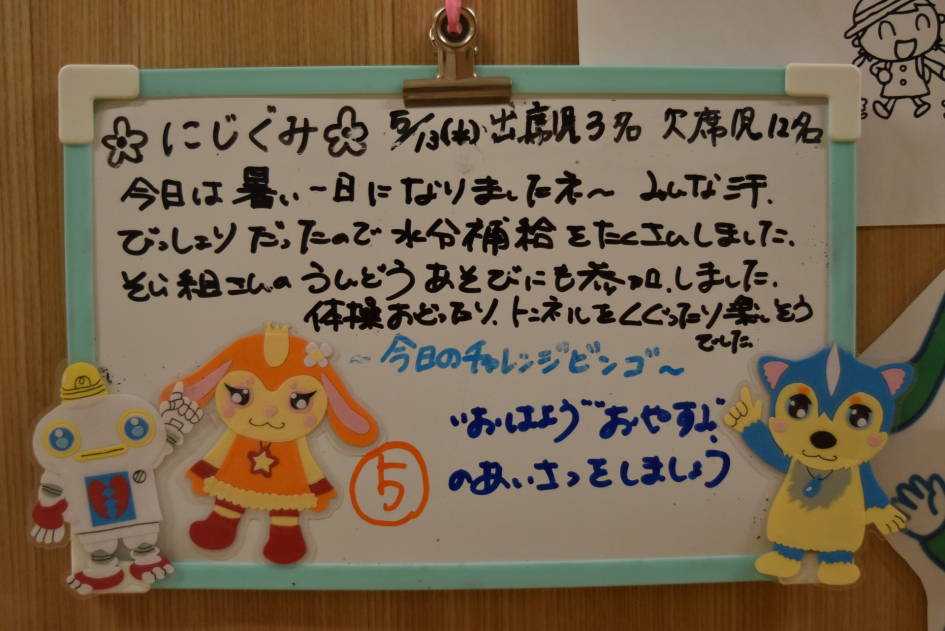 にじぐみ 5/13(水) 出席児3名 欠席児12名
今日は暑い一日になりましたネ〜 みんな汗.
びっしょりだったので水分補給をたくさんしました.
そら組さんのうんどうあそびにも参加しました.
体操おどったり、トンネルをくぐったり楽しそう
でした
〜今日のチャレンジビンゴ〜
"おはよう" "おやすみ"
のあいさつをしましょう
5